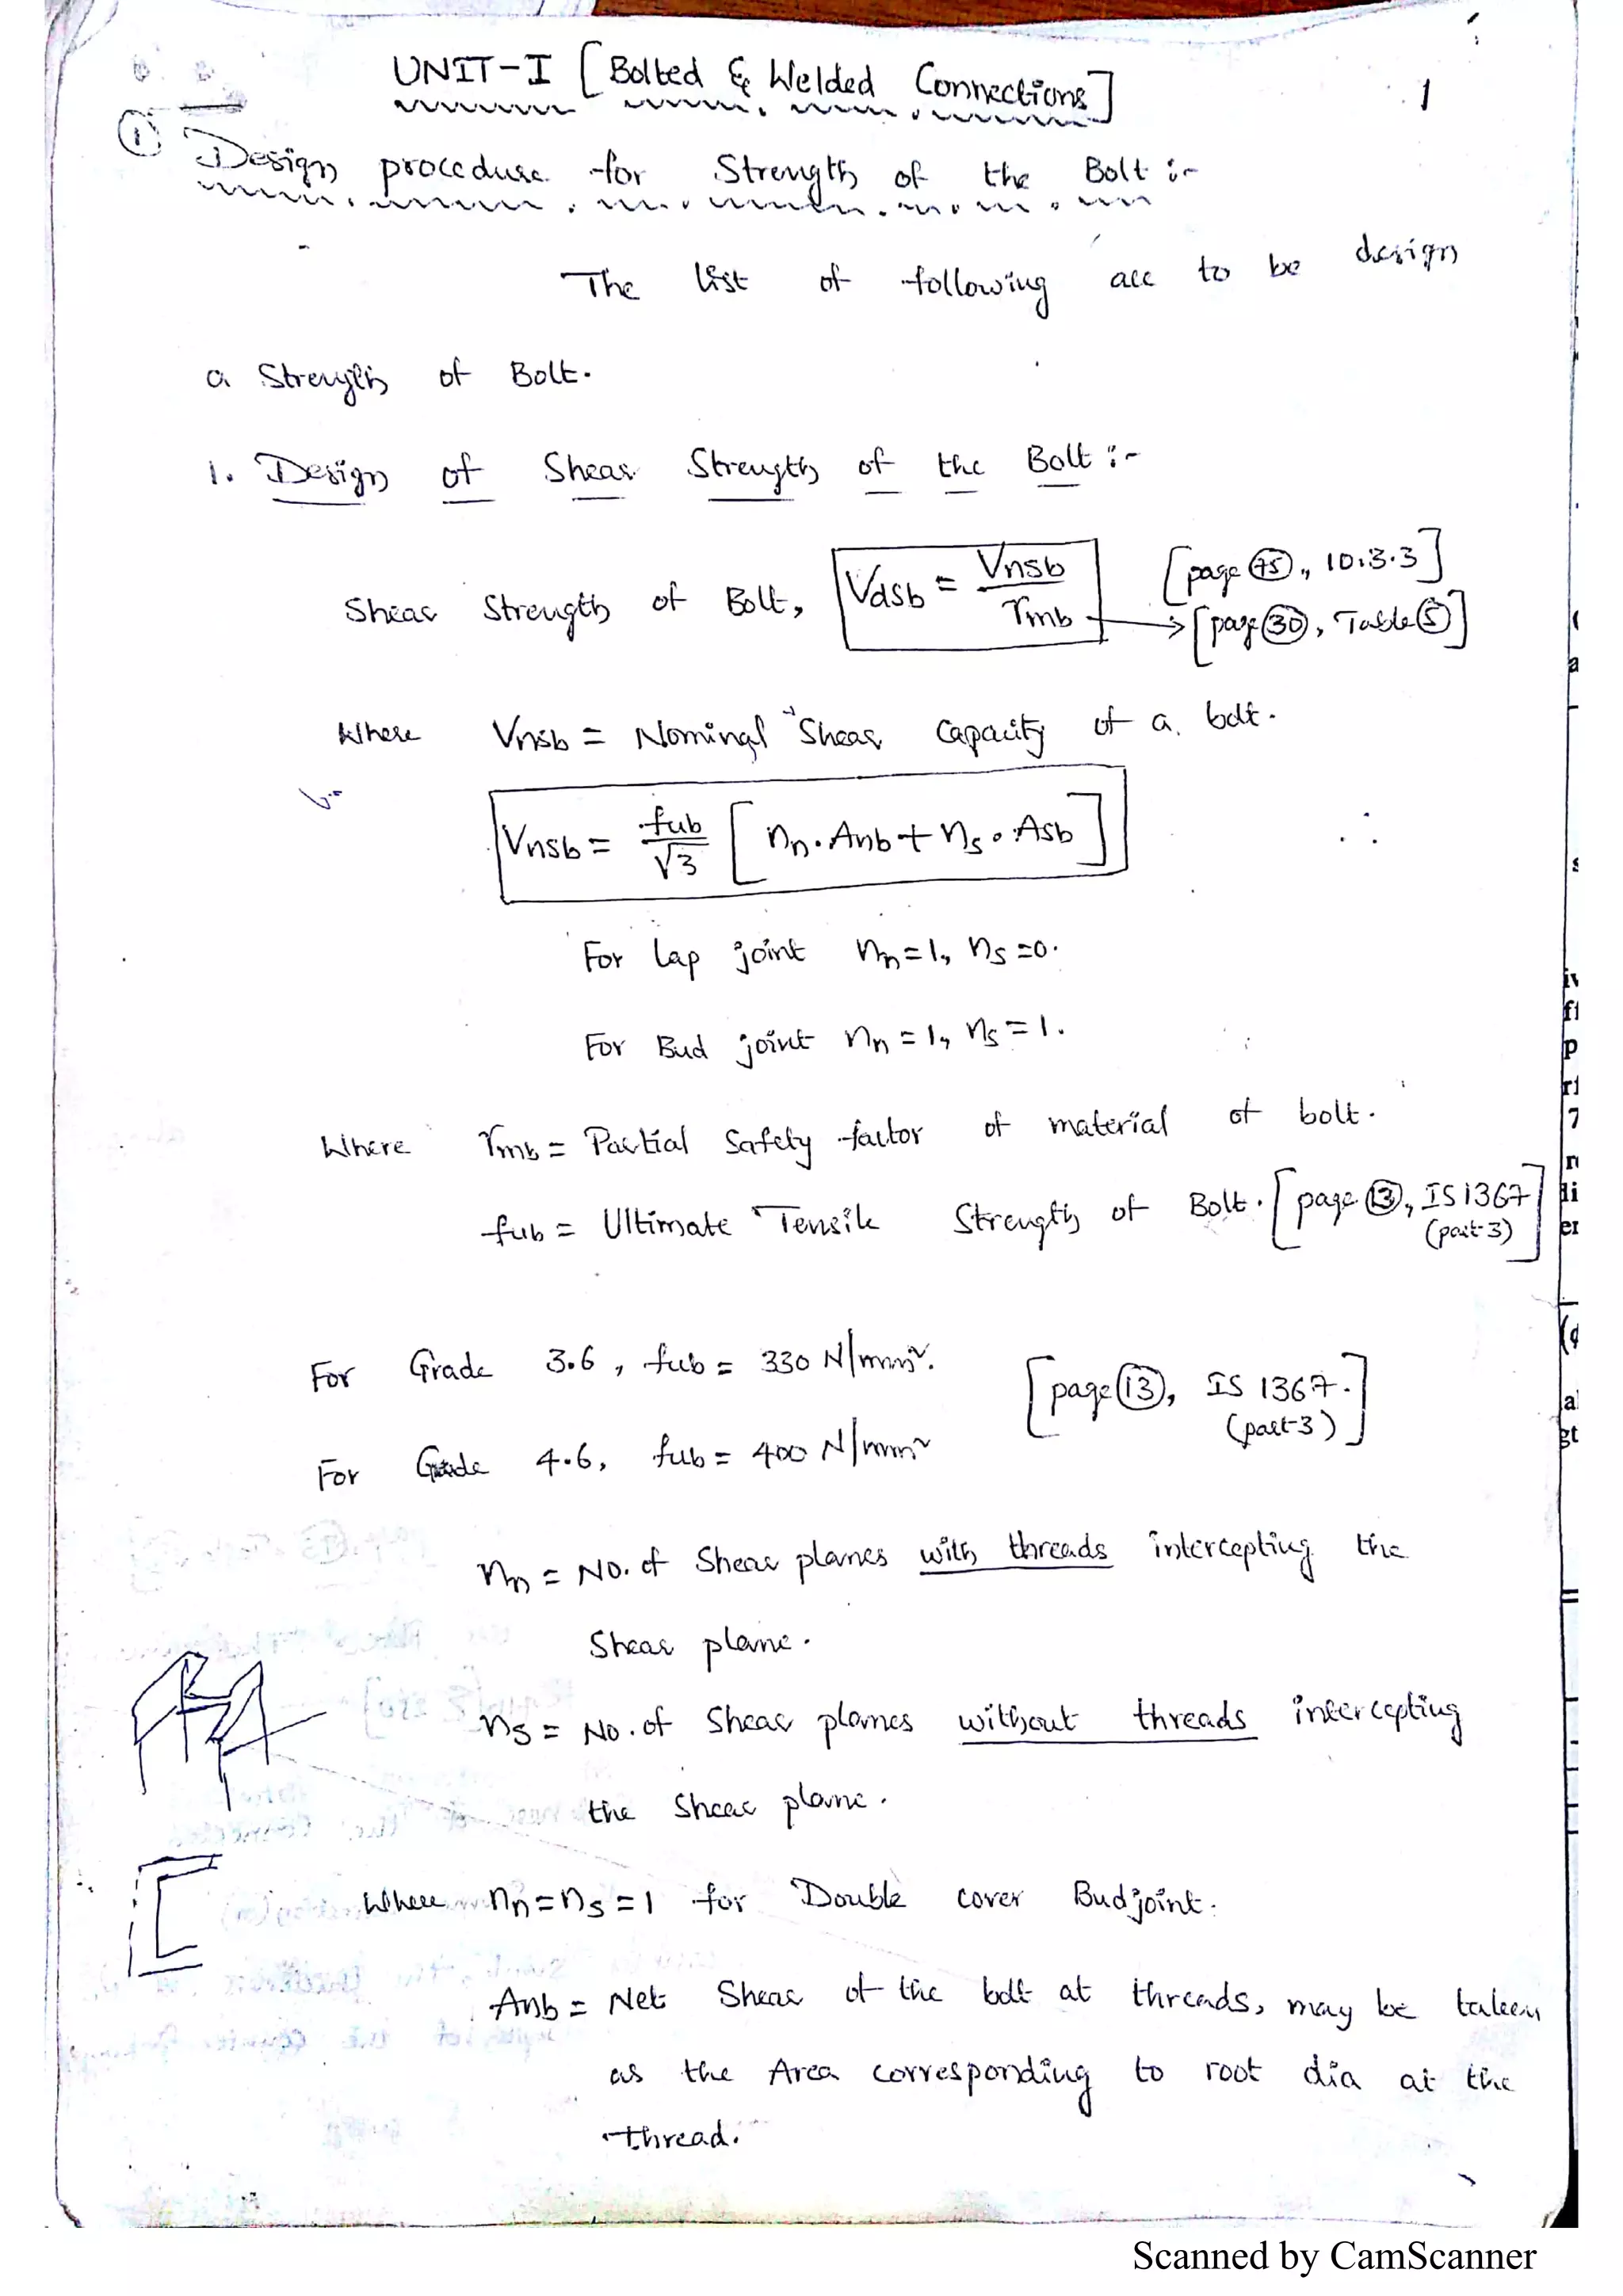 UNIT-I [Bolted & Welded Connections]
1
① Design procedure for Strength of the Bolt :-
The list of following are to be design
a Strength of Bolt.
1. Design of Shear Strength of the Bolt :-
Shear Strength of Bolt, Vdsb = Vnsb / γmb [page 75, 10.3.3]
→ [page 30, Table 5]
Where Vnsb = Nominal Shear Capacity of a bolt.
Vnsb = fub/√3 [nn.Anb + ns.Asb]
For Lap joint nn=1, ns=0.
For Bud joint nn=1, ns=1.
Where γmb = Partial Safety factor of material of bolt.
fub = Ultimate Tensile Strength of Bolt. [page 13, IS 1367 (part-3)]
For Grade 3.6, fub = 330 N/mm².
[page 13, IS 1367. (part-3)]
For Grade 4.6, fub = 400 N/mm²
nn = No. of Shear planes with threads intercepting the
Shear plane.
ns = No. of Shear planes without threads intercepting
the Shear plane.
Where nn=ns=1 for Double cover Budjoint.
Anb = Net Shear of the bolt at threads, may be taken
as the Area corresponding to root dia at the
thread.
Scanned by CamScanner